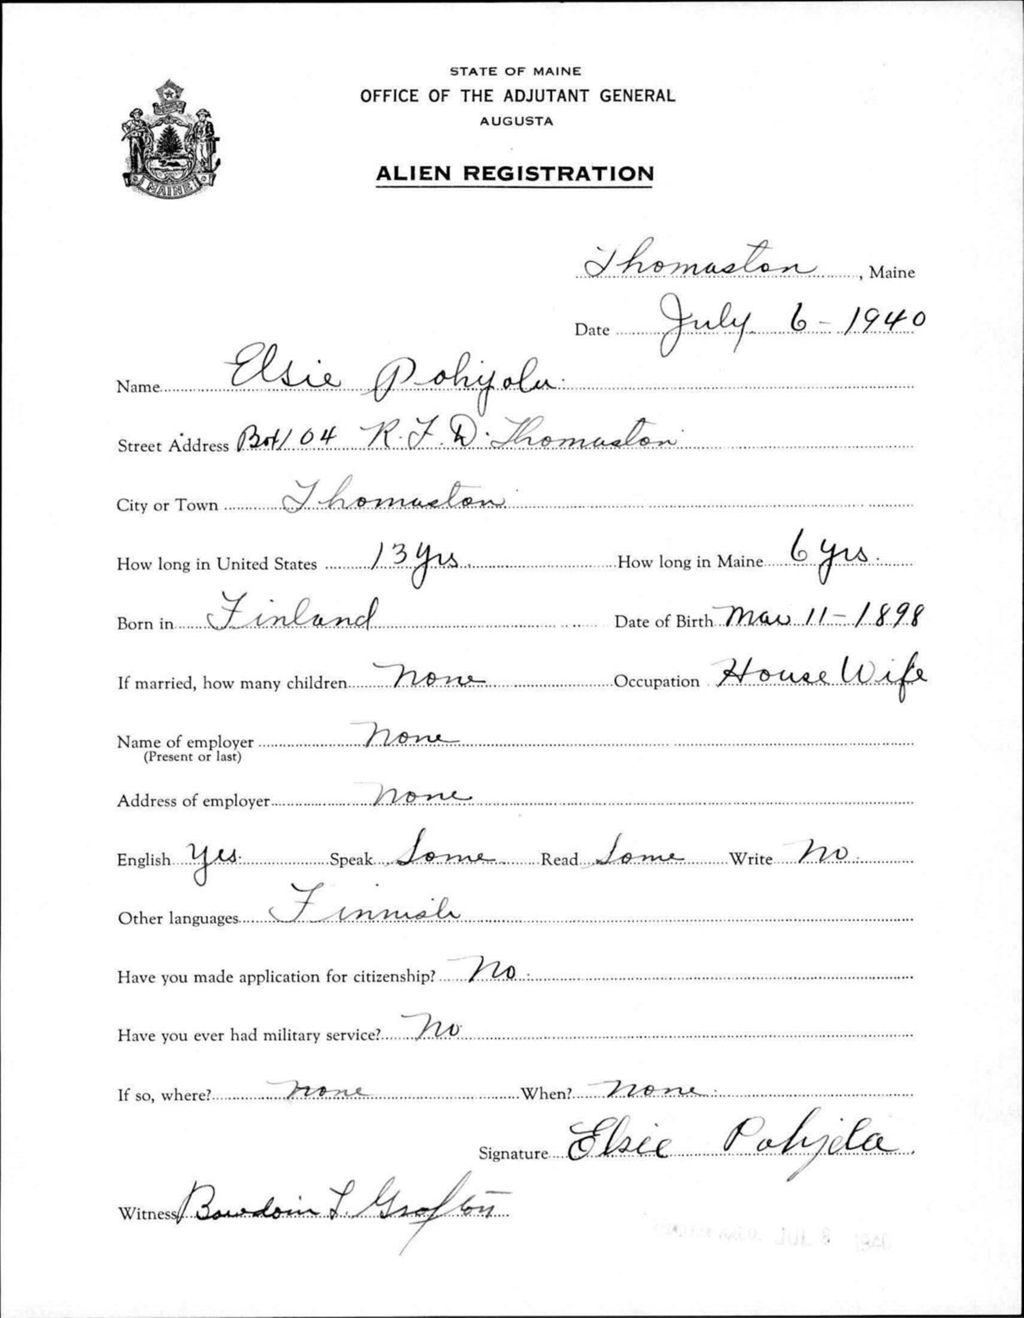 STATE OF MAINE
OFFICE OF THE ADJUTANT GENERAL
AUGUSTA
ALIEN REGISTRATION
MAINE
Thomaston, Maine
Date July 6 - 1940
Name Elsie Pohjola.
Street Address Box 104 R.F.D. Thomaston
City or Town Thomaston.
How long in United States 13 yrs. How long in Maine 6 yrs.
Born in Finland Date of Birth Mar 11 - 1898
If married, how many children None Occupation House Wife
Name of employer None
(Present or last)
Address of employer None
English Yes. Speak Some Read Some Write No.
Other languages Finnish
Have you made application for citizenship? No.
Have you ever had military service? No
If so, where? none When? None.
Signature Elsie Pohjola.
Witness Bowdoin L. Grafton
JUL 8 1940